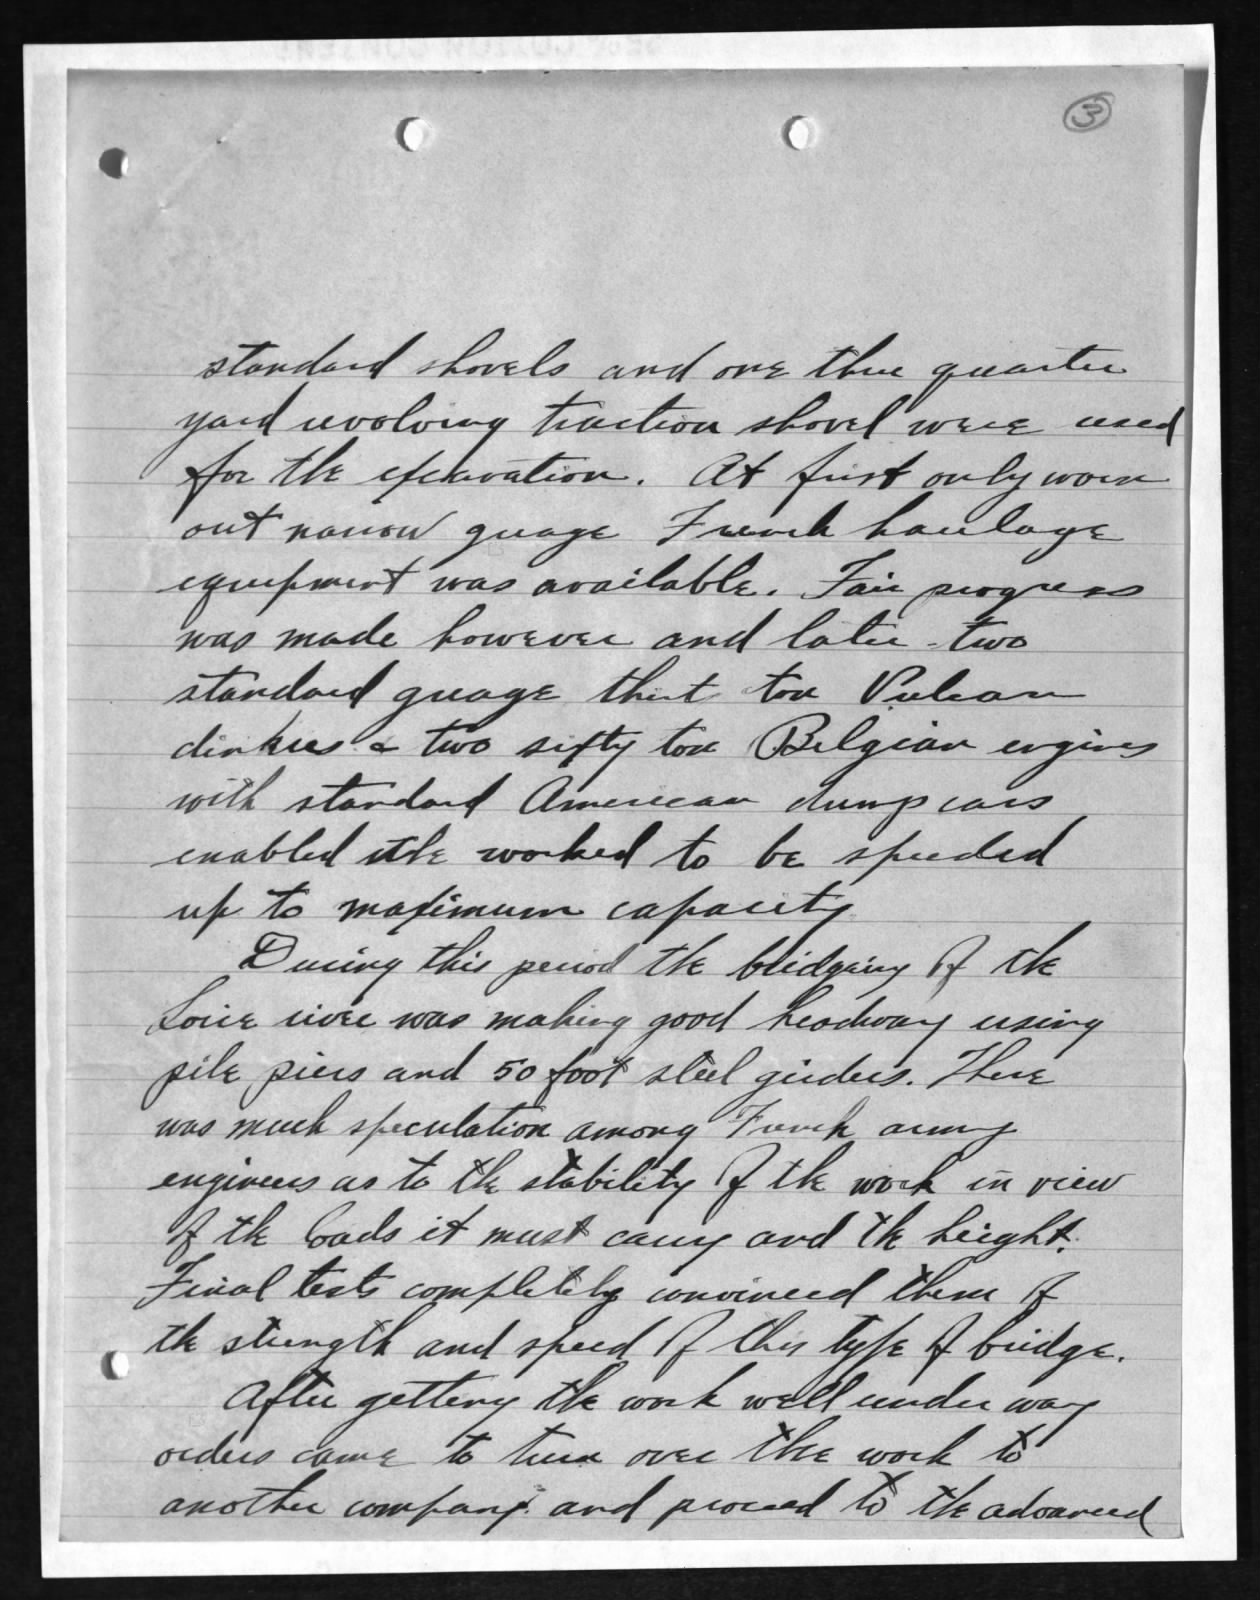 3
standard shovels and one three quarter
yard revolving traction shovel were used
for the excavation. At first only worn
out narrow guage French haulage
equipment was available. Fair progress
was made however and later two
standard guage thirt ton Vulcan
dinkies & two sixty ton Belgian engines
with standard American dump cars
enabled the worked to be speeded
up to maximum capacity
During this period the bridgeing of the
Loire river was making good headway using
pile piers and 50 foot steel girders. There
was much speculation among French army
engineers as to the stability of the work in view
of the loads it must carry and the height.
Final tests completely convinced them of
the strength and speed of this type of bridge.
After getting the work well under way
orders came to turn over the work to
another company and proceed to the advanced